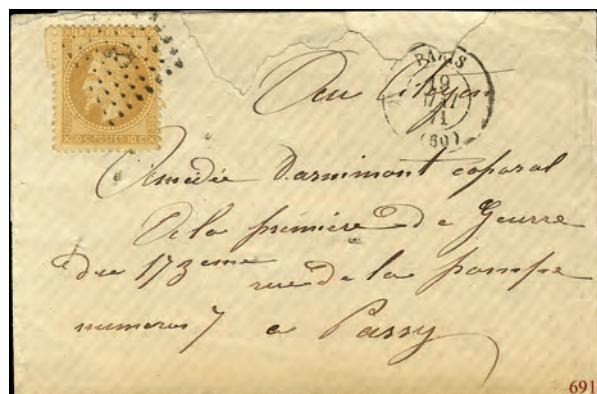 10 C. POSTES 10 C.
PARIS
19
MAI
71
(60)
Au Citoyen
Amédée Darnimont coporal
de la première De Geurre
du 173eme rue de la pompe
numeros 7 a Passy
691